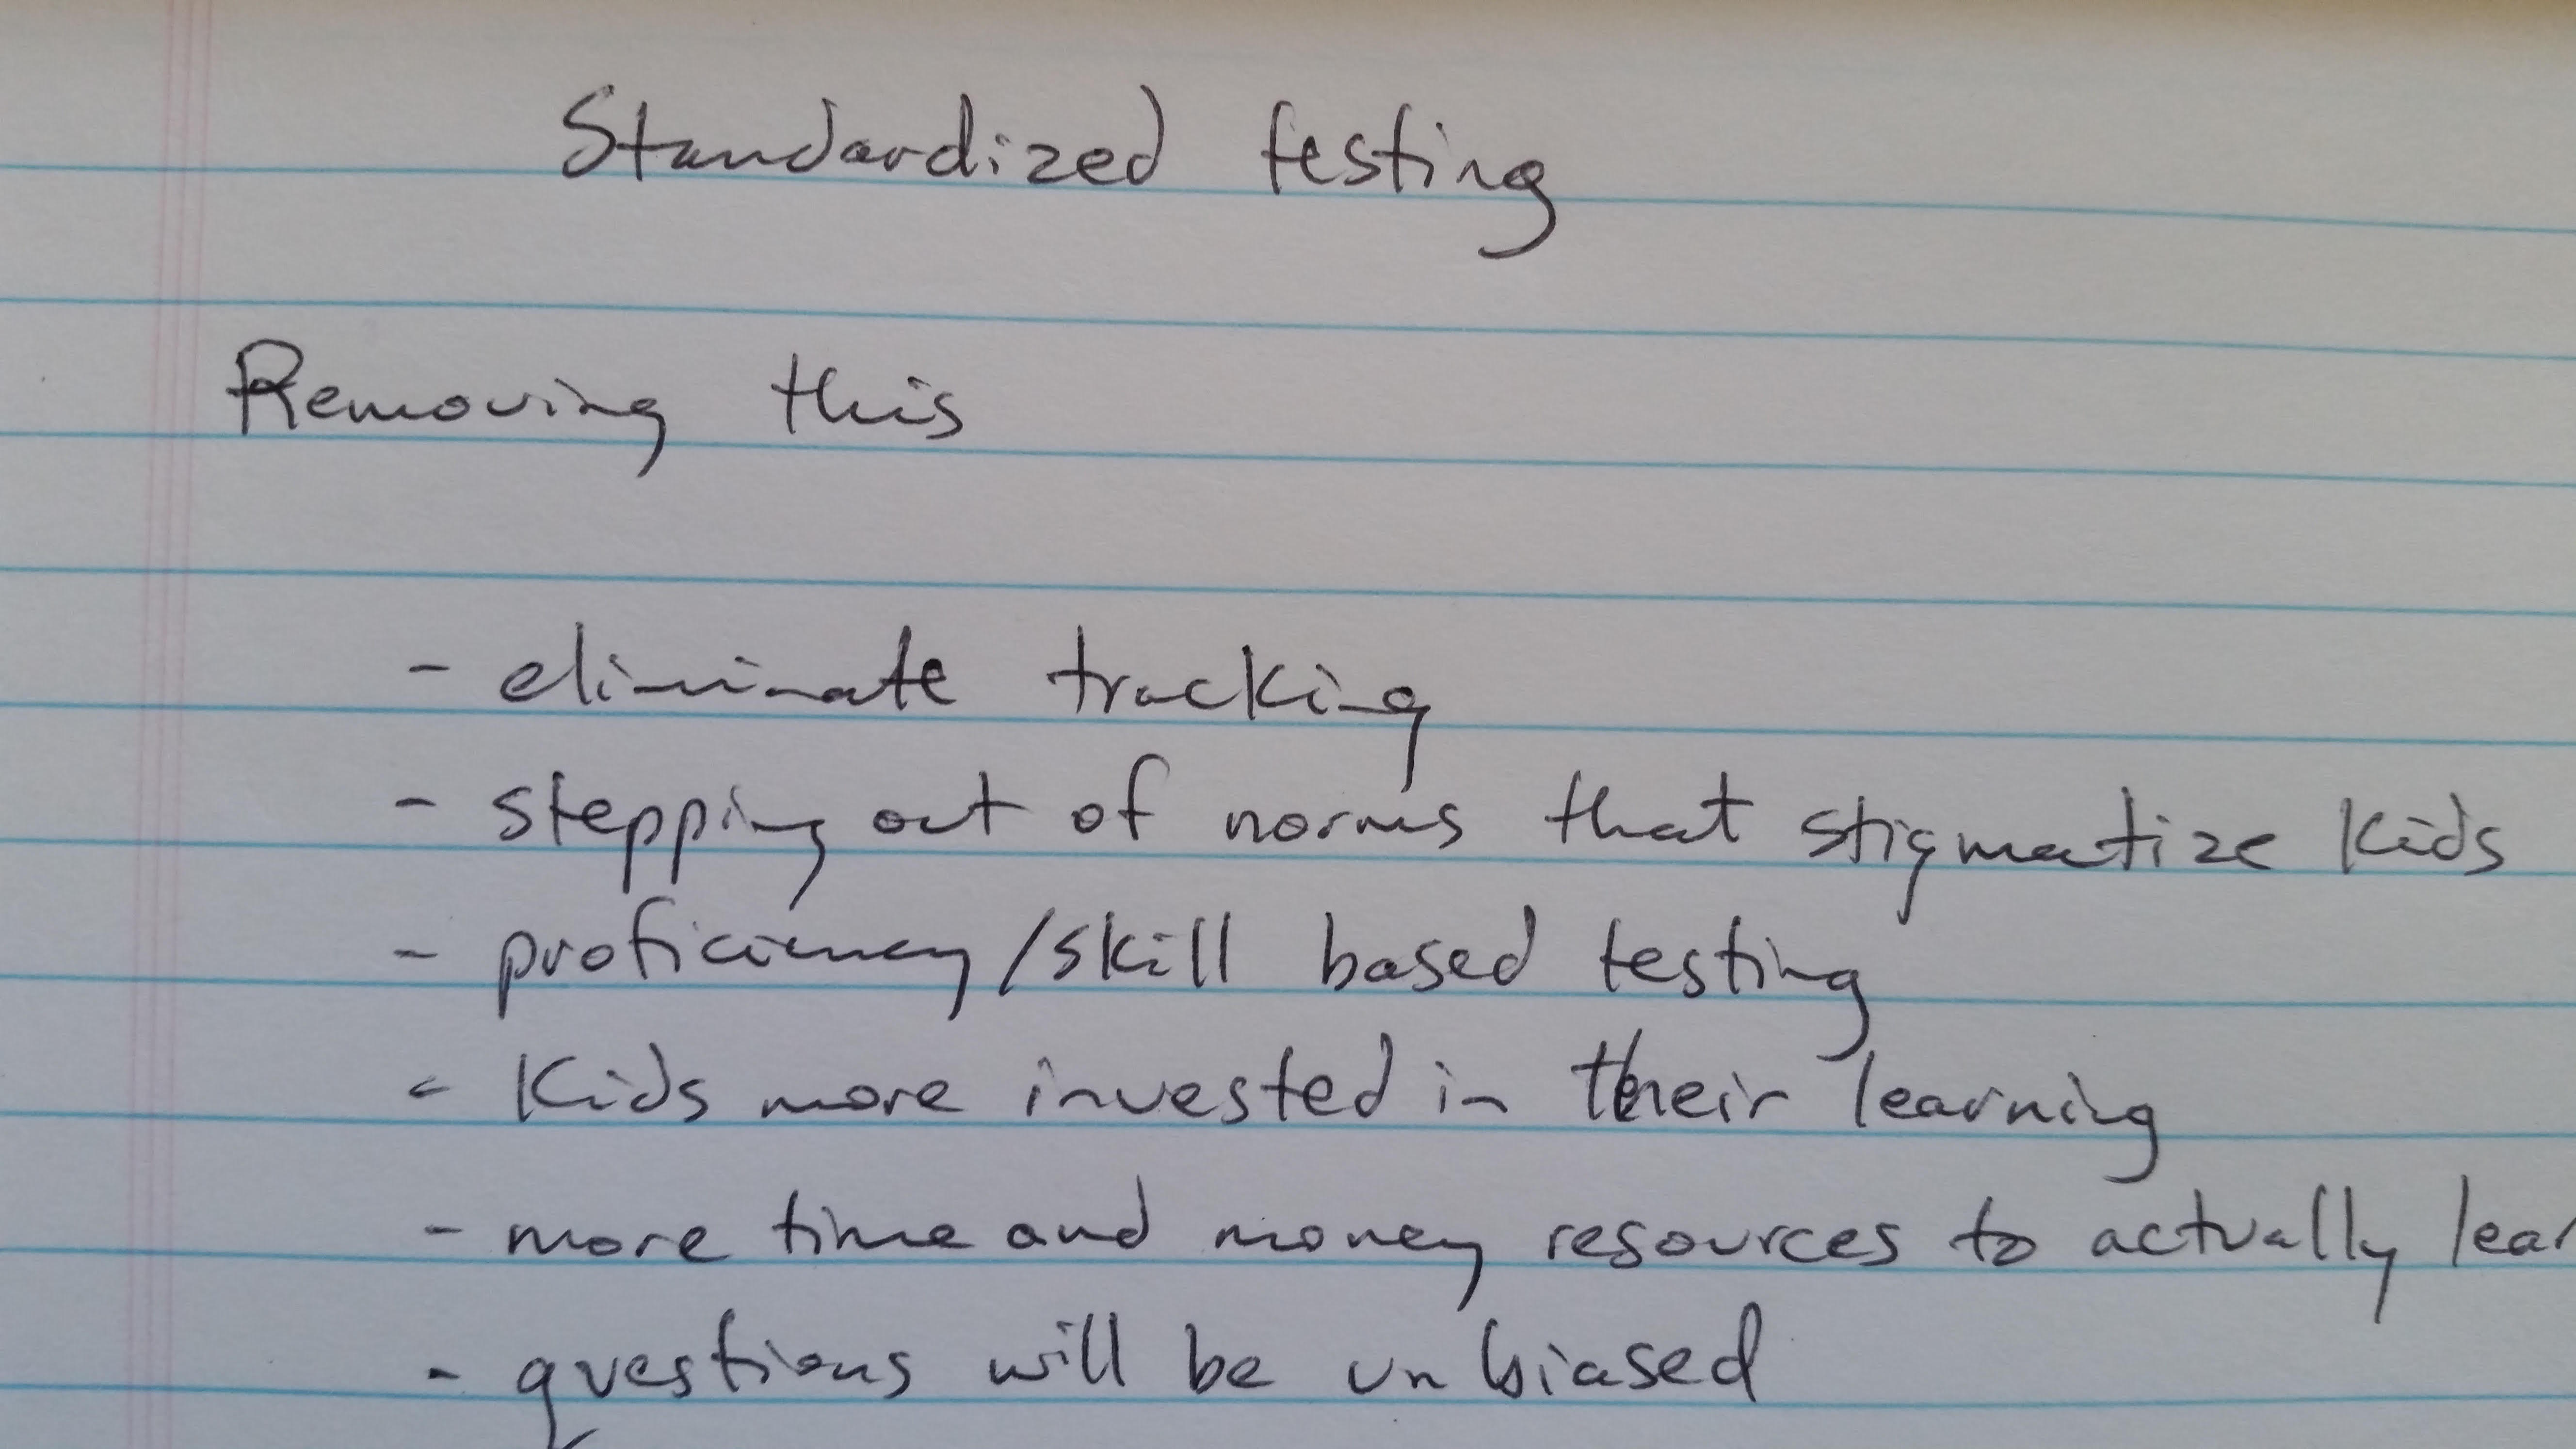 Standardized testing
Removing this
- eliminate tracking
- stepping out of norms that stigmatize kids
- proficiency/skill based testing
- Kids more invested in their learning
- more time and money resources to actually lear
- questions will be unbiased